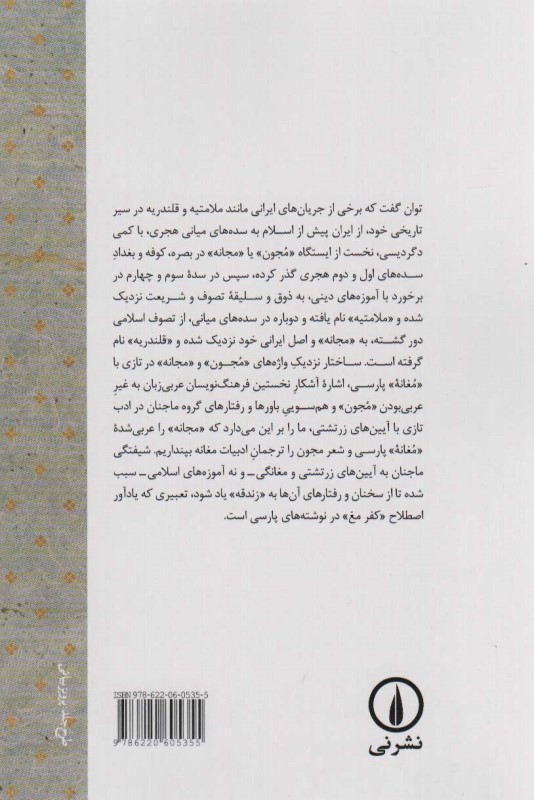 توان گفت که برخی از جریان‌های ایرانی مانند ملامتیه و قلندریه در سیر
تاریخی خود، از ایران پیش از اسلام به سده‌های میانی هجری، با کمی
دگردیسی، نخست از ایستگاه «مُجون» یا «مجانه» در بصره، کوفه و بغدادِ
سده‌های اول و دوم هجری گذر کرده، سپس در سدهٔ سوم و چهارم در
برخورد با آموزه‌های دینی، به ذوق و سلیقهٔ تصوف و شریعت نزدیک
شده و «ملامتیه» نام یافته و دوباره در سده‌های میانی، از تصوف اسلامی
دور گشته، به «مجانه» و اصل ایرانی خود نزدیک شده و «قلندریه» نام
گرفته است. ساختار نزدیکِ واژه‌های «مُجـون» و «مجانه» در تازی با
«مُغانهٔ» پارسی، اشارهٔ آشکارِ نخستین فرهنگ‌نویسان عربی‌زبان به غیرِ
عربی‌بودن «مُجون» و هم‌سوییِ باورها و رفتارهای گروه ماجنان در ادب
تازی با آیین‌های زرتشتی، ما را بر این می‌دارد که «مجانه» را عربی‌شدهٔ
«مُغانهٔ» پارسی و شعر مجون را ترجمانِ ادبیات مغانه بپنداریم. شیفتگی
ماجنان به آیین‌های زرتشتی و مغانگی ـ و نه آموزه‌های اسلامی ـ سبب
شده تا از سخنان و رفتارهای آن‌ها به «زندقه» یاد شود، تعبیری که یادآور
اصطلاح «کفر مغ» در نوشته‌های پارسی است.
طرح جلد: پرویز بیانی
ISBN 978-622-06-0535-5
9 786220 605355
نشرنی